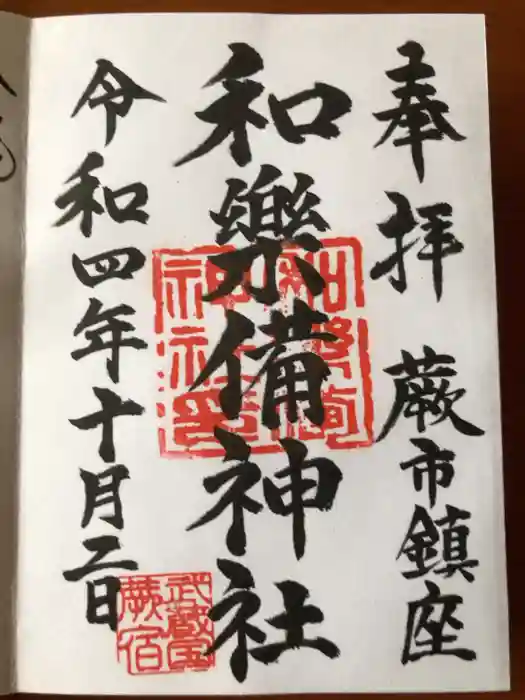 奉拝 蕨市鎮座
和樂備神社
令和四年十月二日
和樂備神社印
武蔵国
蕨宿